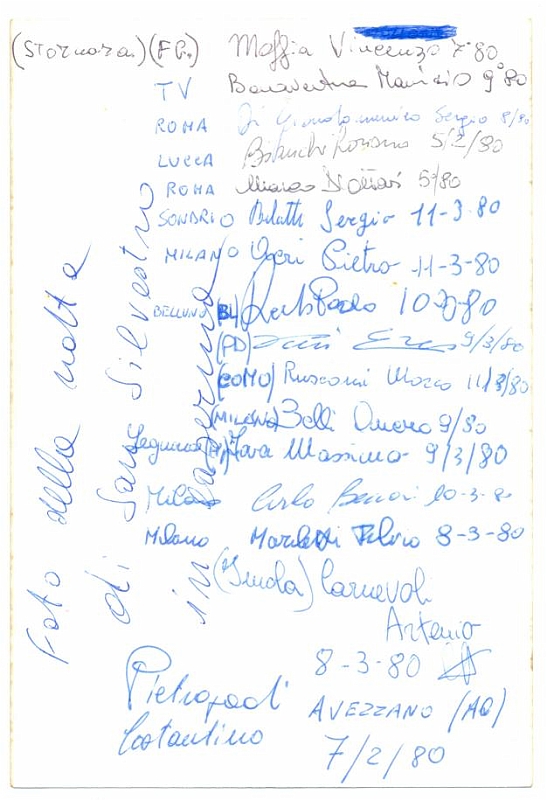 (Stornara) (FG.) Maffia Vincenzo 7°80
TV Bonaventura Maurizio 9°80
ROMA Di Giandomenico Sergio 8/80
LUCCA Bianchi Romano 5/2/80
ROMA Marco 5/80
SONDRIO Belatti Sergio 11-3-80
MILANO Pietro 11-3-80
BELLUNO (BL) Paolo 80
(PD) 9/3/80
(COMO) Rusconi Marco 11/3/80
(MILANO) Belli Omero 9/80
Legnano (MI) Fava Massimo 9/3/80
Milano Carlo 10-3-80
Milano Fulvio 8-3-80
(Imola) Carnevali
Artemio
8-3-80
Pietropaoli AVEZZANO (AQ)
Costantino 7/2/80
Foto della notte
di San Silvestro
in caserma